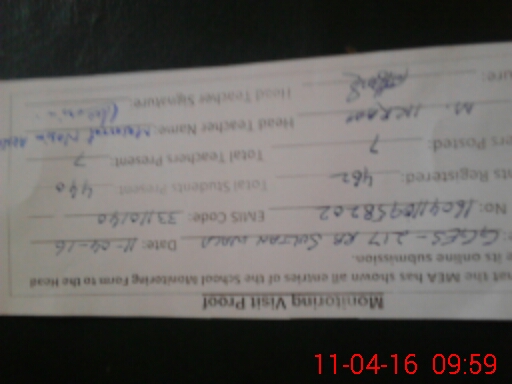 Monitoring Visit Proof
hat the MEA has shown all entries of the School Monitoring Form to the Head
e its online submission.
GGES - 217 RB SULTAN WALA Date: 11-04-16
No: EMIS Code: 33110140
nts Registered: 462 Total Students Present: 440
ers Posted: 7 Total Teachers Present: 7
M. IKRAM Head Teacher Name:
ure: Head Teacher Signature
11-04-16 09:59